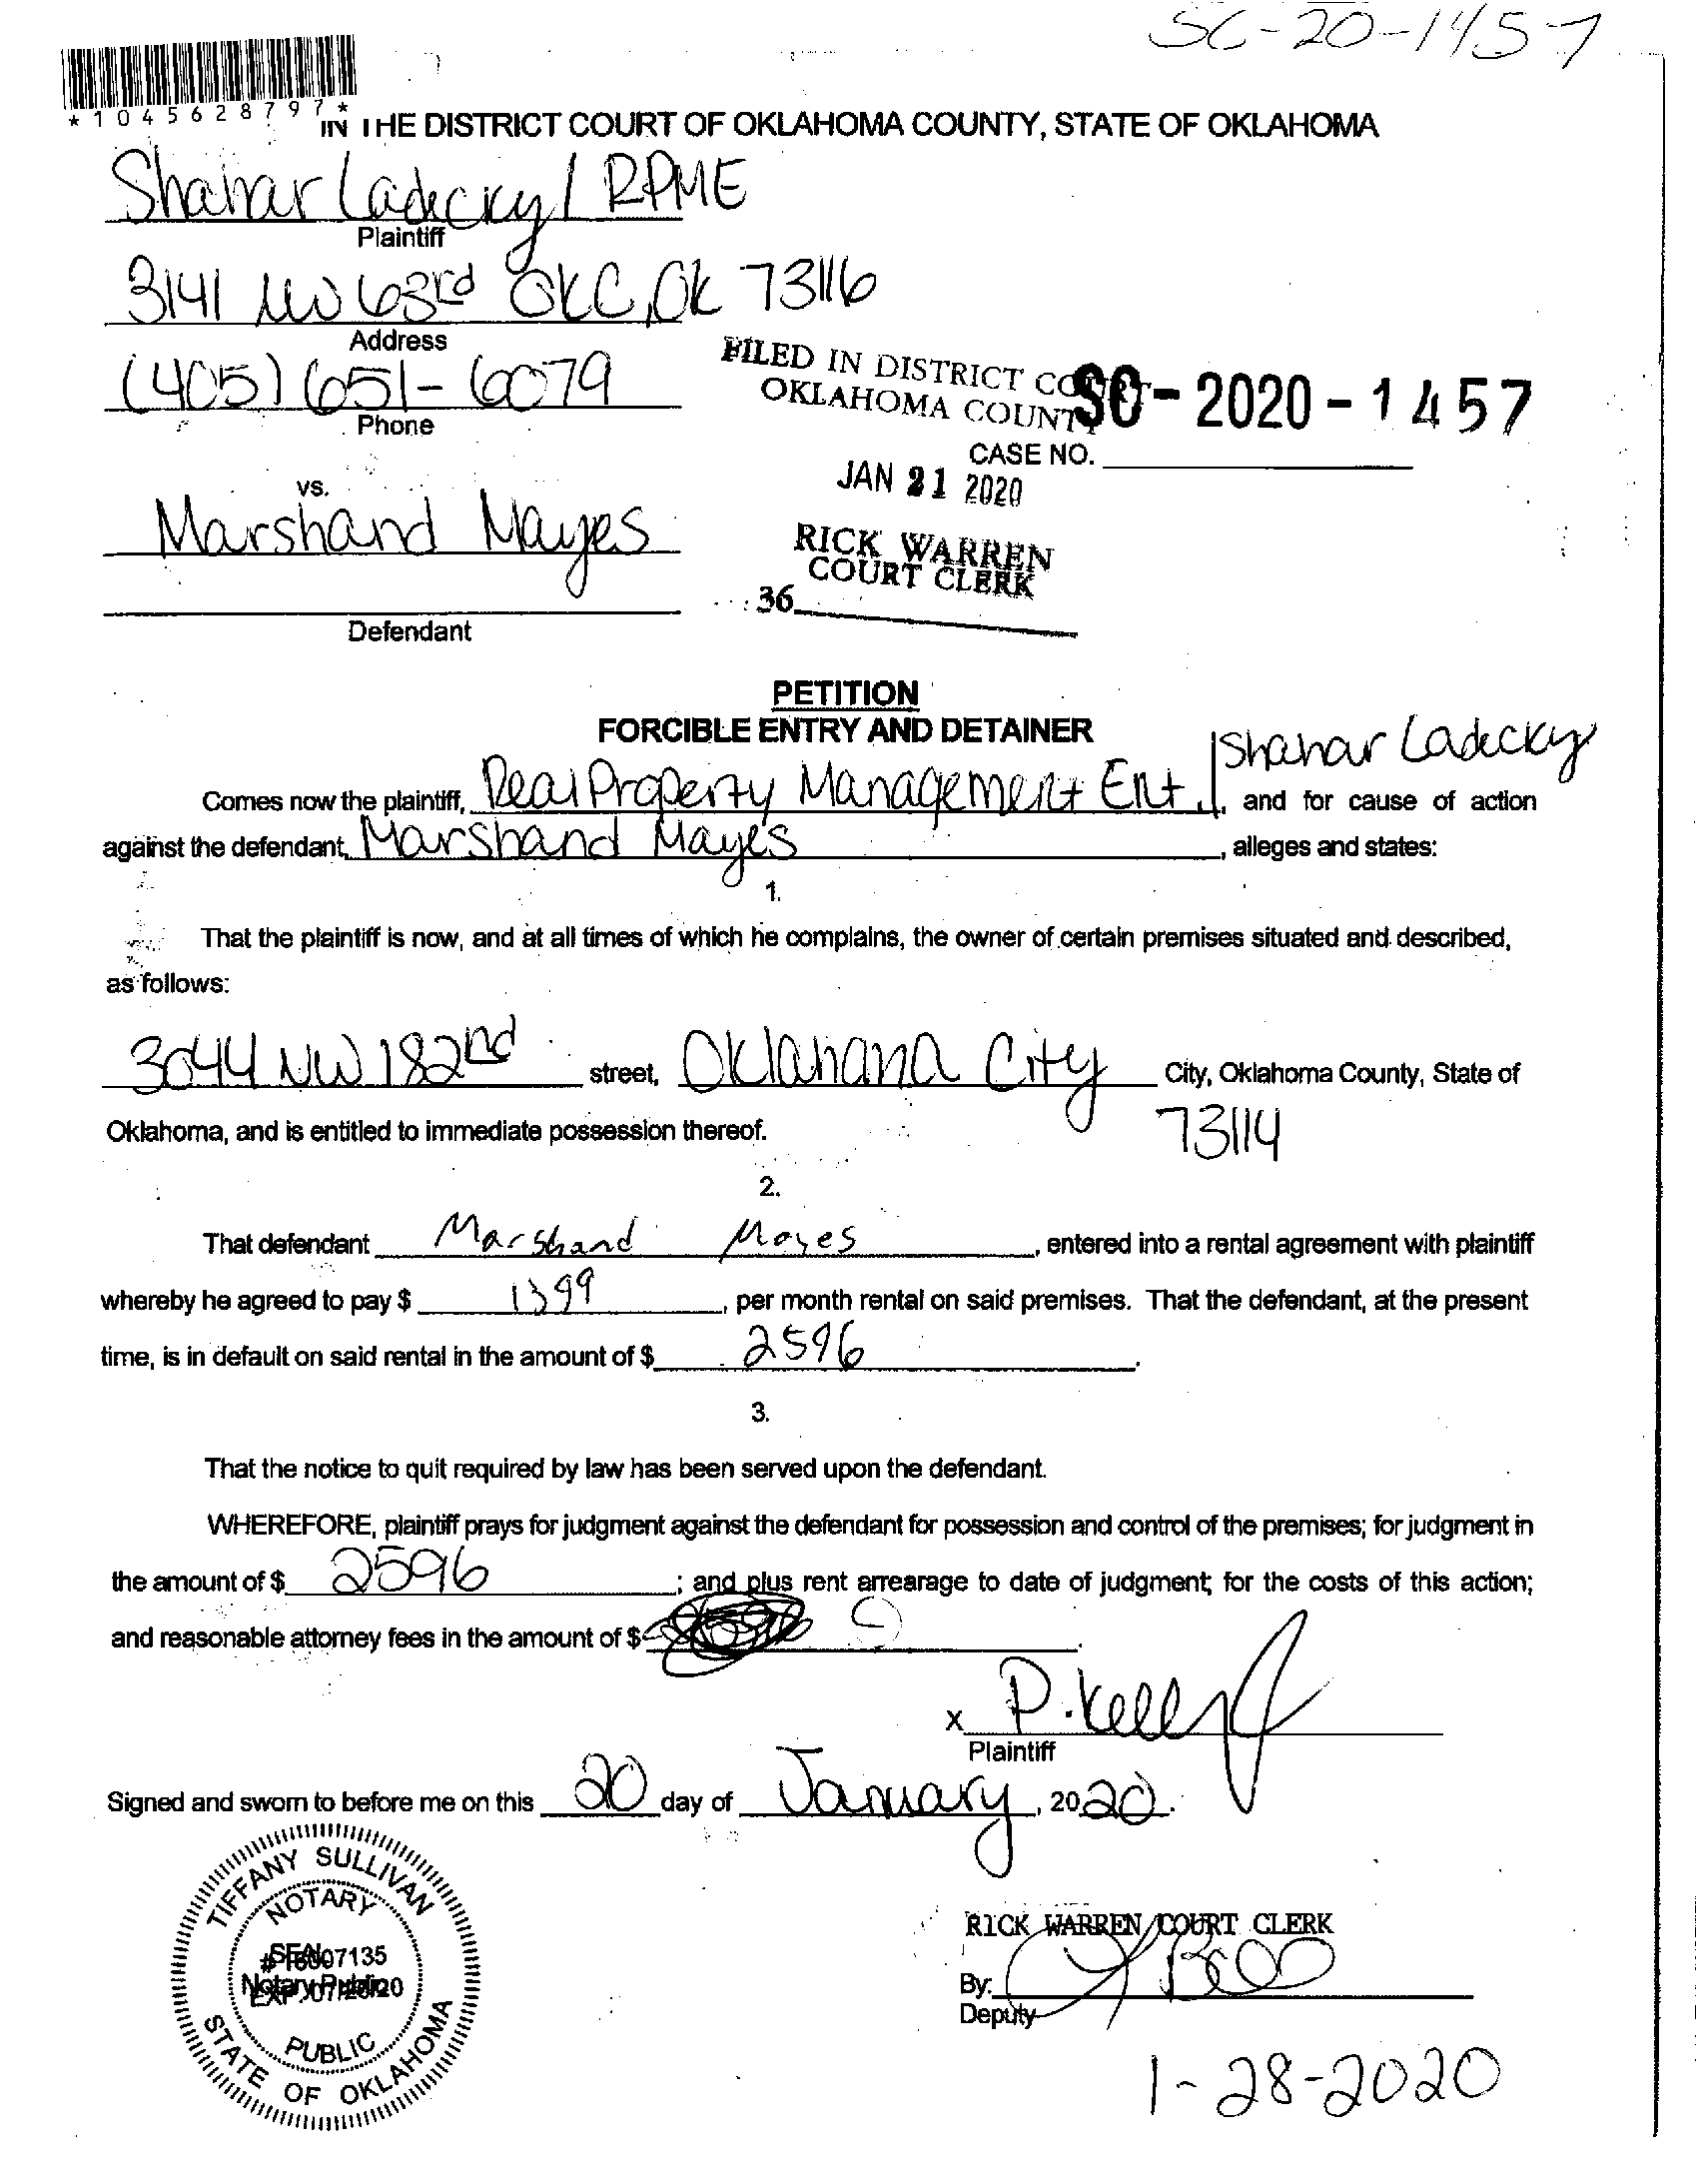 SC-20-1457
*1045628797*
IN THE DISTRICT COURT OF OKLAHOMA COUNTY, STATE OF OKLAHOMA
Shahar Ladecky / RPME
Plaintiff
3141 NW 63rd OKC, OK 73116
Address
(405) 651-6079
Phone
FILED IN DISTRICT COURT
OKLAHOMA COUNTY
SC-2020-1457
CASE NO.
JAN 21 2020
vs.
Marshand Mayes
RICK WARREN
COURT CLERK
36
Defendant
PETITION
FORCIBLE ENTRY AND DETAINER
Comes now the plaintiff, Real Property Management Ent. / Shahar Ladecky, and for cause of action
against the defendant, Marshand Mayes, alleges and states:
1.
That the plaintiff is now, and at all times of which he complains, the owner of certain premises situated and described,
as follows:
3044 NW 182nd street, Oklahana City City, Oklahoma County, State of
Oklahoma, and is entitled to immediate possession thereof. 73114
2.
That defendant Marshand Mayes, entered into a rental agreement with plaintiff
whereby he agreed to pay $ 1399, per month rental on said premises. That the defendant, at the present
time, is in default on said rental in the amount of $ 2596.
3.
That the notice to quit required by law has been served upon the defendant.
WHEREFORE, plaintiff prays for judgment against the defendant for possession and control of the premises; for judgment in
the amount of $ 2596; and plus rent arrearage to date of judgment; for the costs of this action;
and reasonable attorney fees in the amount of $
x P. Kelly
Plaintiff
Signed and sworn to before me on this 20 day of January, 2020.
TIFFANY SULLIVAN
NOTARY
SEAL
#16007135
Notary Public
EXP. 07/26/20
PUBLIC
STATE OF OKLAHOMA
RICK WARREN COURT CLERK
By:
Deputy
1-28-2020